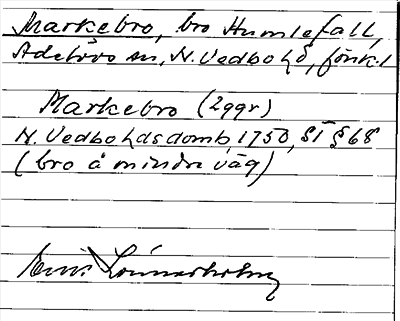 Markebro, bro Humlefall,
Adelövs sn, N. Vedbo hd, Jönk. l
Markebro (2 ggr)
N. Vedbo hds domb, 1750, § 68
(bro å mindre väg)